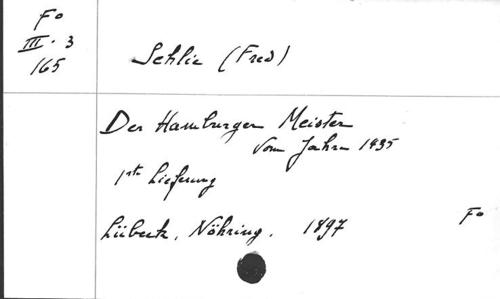 Fo
III. 3
165
Schlie (Fred)
Der Hamburger Meister
vom Jahre 1435
1ste Lieferung
Lübeck, Nöhring, 1897
Fo